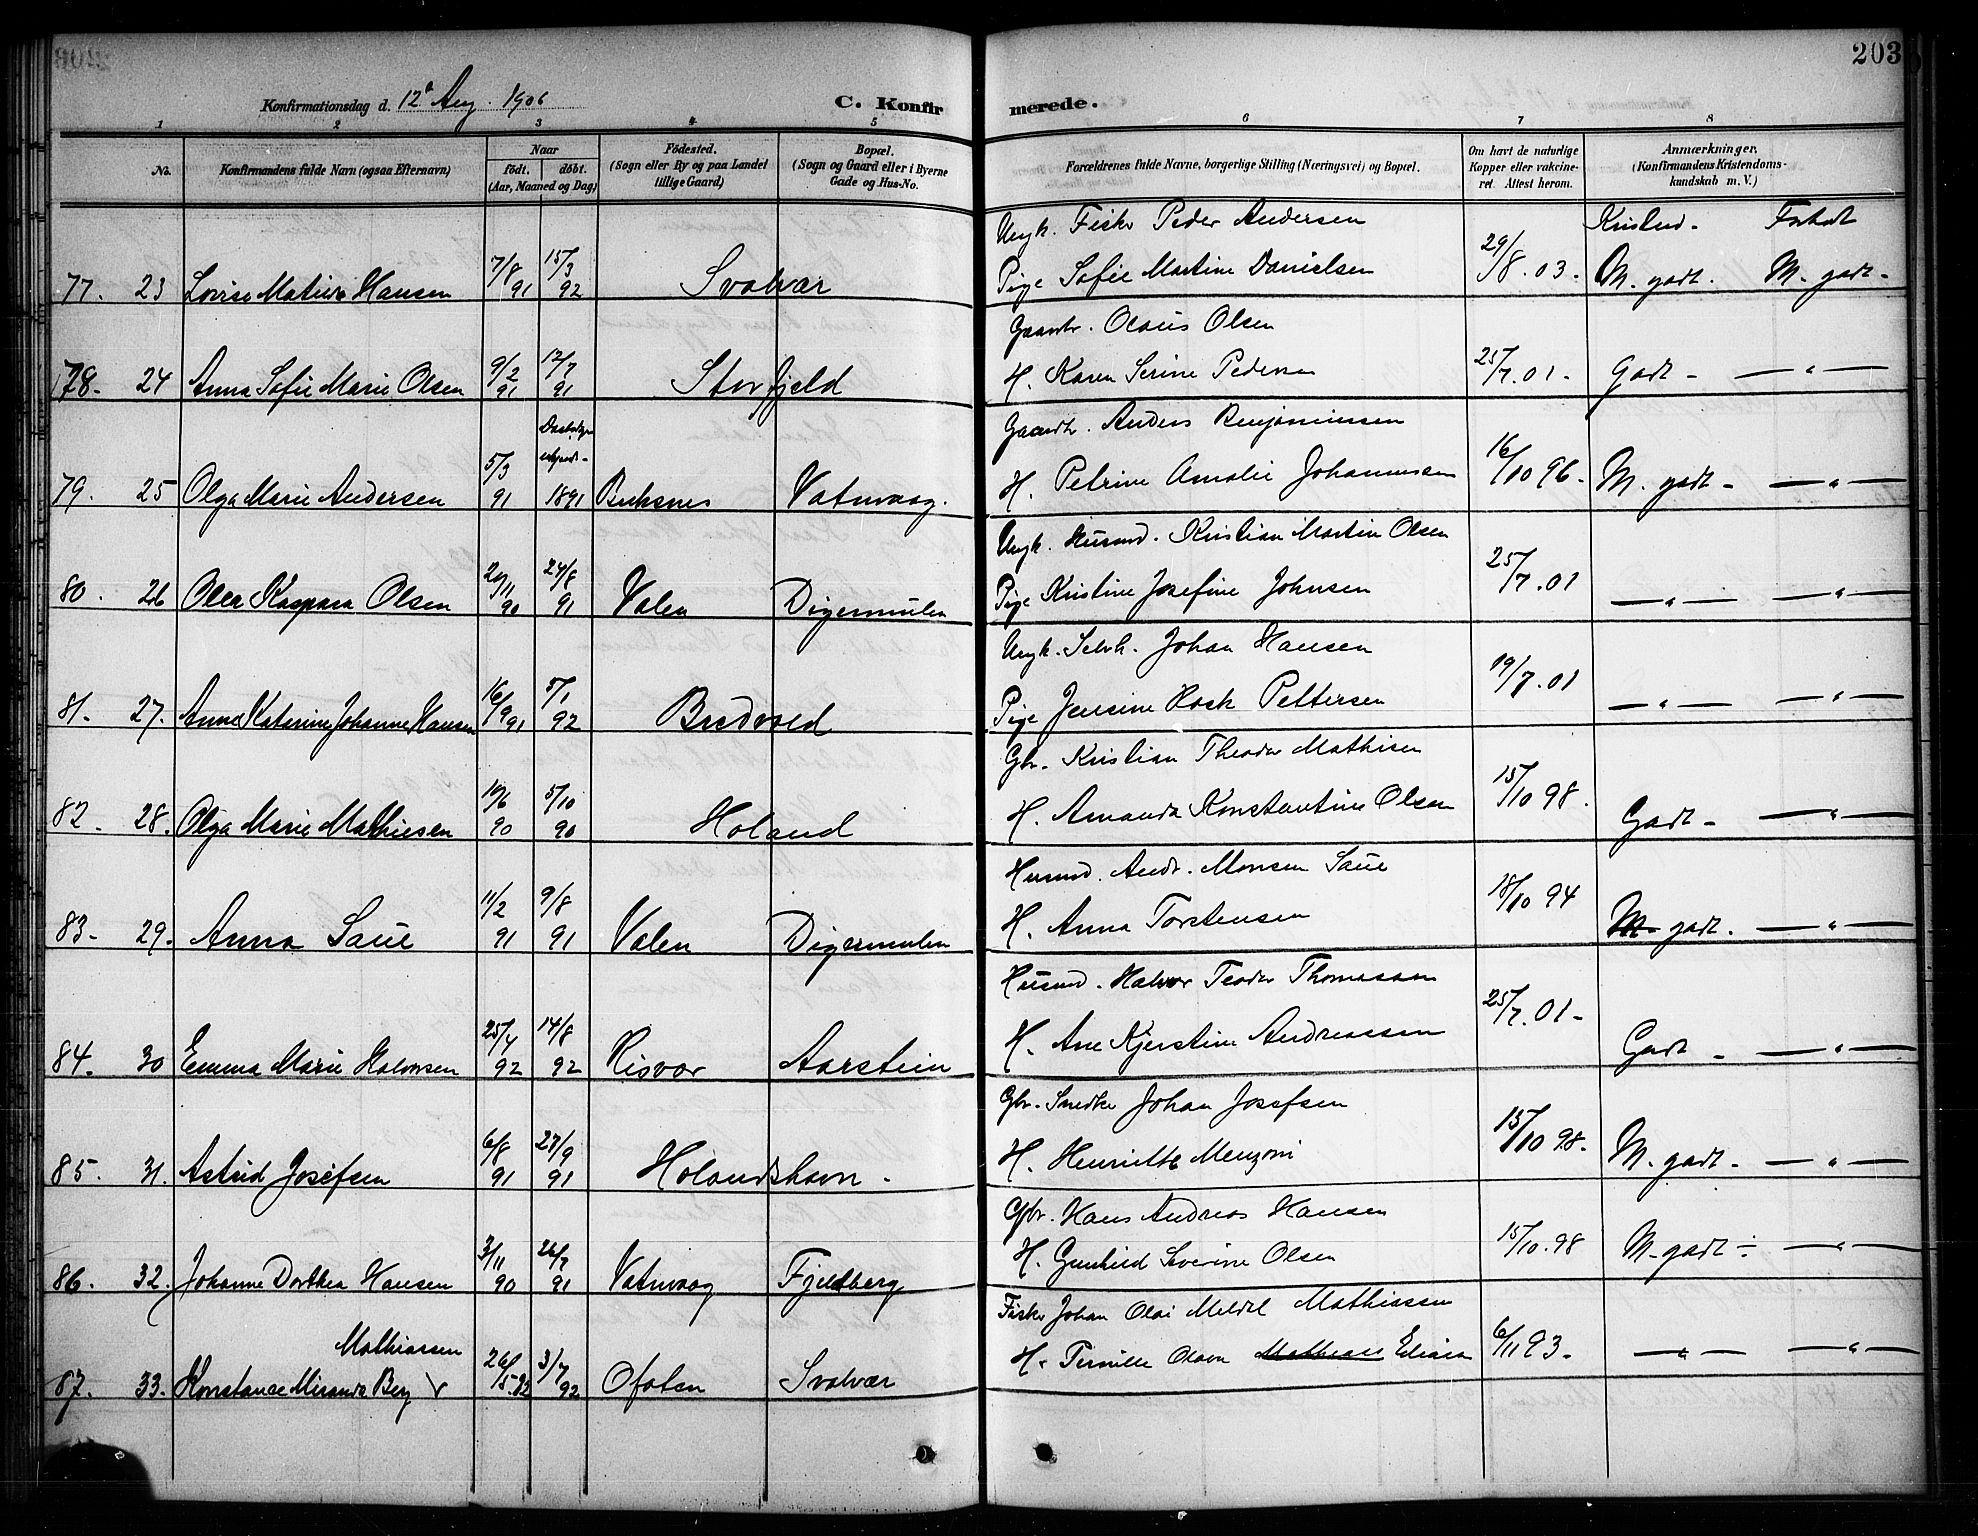 203
Konfirmationsdag d. 12te Aug. 1906 C. Konfirmerede.
1 2 3 4 5 6 7 8
No. Konfirmandens fulde Navn (ogsaa Efternavn) Naar födt. döbt. (Aar, Maaned og Dag) Födested. (Sogn eller By og paa Landet tillige Gaard) Bopæl. (Sogn og Gaard eller i Byerne Gade og Hus-No. Forældrenes fulde Navne, borgerlige Stilling (Næringsvei) og Bopæl. Om havt de naturlige Kopper eller vakcineret. Attest herom. Anmærkninger. (Konfirmandens Kristendomskundskab m. V.)
Ungk. Fisker Peder Andersen Kristend- Forhold
77. 23 Lovise Matine Hansen 7/8 91 15/3 92 Svolvær Pige Sofie Martine Danielsen 29/8.03- M. godt. M. godt-
Gaardbr. Olaus Olsen
78- 24 Anna Sofie Marie Olsen 9/2 91 12/7 91 Storfjeld H. Karen Serine Pedersen 25/7.01- Godt - — " —
Gaardbr. Anders Benjaminsen
79. 25 Olga Marie Andersen 5/3 91 1891 Buksnes Vatnvaag. H. Petrine Amalie Johannessen 16/10 96- M. godt - — " —
Ungk. Husmd. Kristian Martin Olsen
80. 26 Olea Kaspara Olsen 90 24/8 91 Valen Digermulen Pige Kristine Josefine Johnsen 25/7.01 — " — — " —
Ungk. Selvh. Johan Hansen
81. 27. Anna Katerine Johanne Hansen 16/9 91 5/1 92 Bredvold Pige Jensine Pettersen 19/7.01 — " — — " —
Gbr. Kristian Theodor Mathisen
82. 28. Olga Marie Mathiesen 90 5/10 90 Holand H. Amanda Konstantine Olsen 15/10 98. Godt - — " —
Husmd. Andr. Monsen Saue
83- 29. Anna Saue 11/2 91 9/8 91 Valen Digermulen H. Anna Torstensen 18/10 94 M- godt. — " —
Husmd. Halvor Teodor Thomassen
84. 30 Emma Marie Halvorsen 25/4 92 14/8 92 Risvær Aarstein H. Ane Kjerstine Andreassen 25/7.01- Godt - — " —
Gbr. Snedker Johan Josefsen
85. 31. Astrid Josefsen 6/8 91 27/9 91 Holandshavn. H. Henriette Menzoni 15/10 98. M. godt- — " —
Gbr. Hans Andreas Hansen
86. 32. Johanne Dorthea Hansen 3/11 90 26/7 91 Vatnvaag Fjeldberg H. Gunhild Severine Olsen 15/10.98 M- godt- — " —
Mathiassen Fisker Johan Olai Meldal Mathiassen
87. 33. Konstance Miranda Berg 26/5.92 3/7 92 Ofoten Svolvær H. Pernille Olava Mathias Elias 6/11 93. — " — — " —